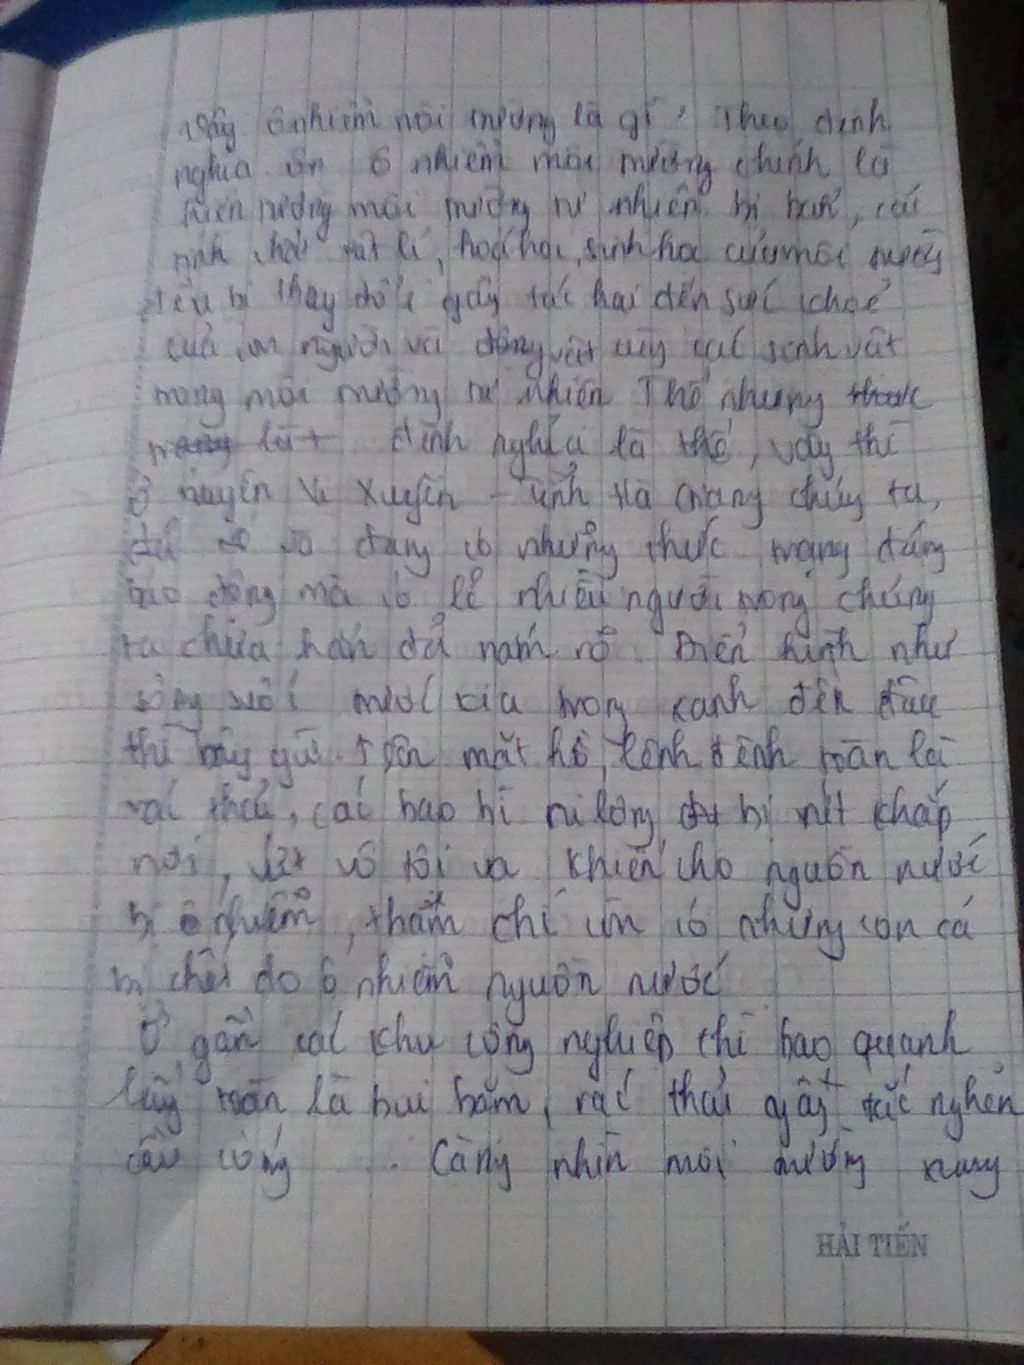 Vậy ô nhiễm môi trường là gì? Theo định
nghĩa ô nhiễm môi trường chính là
hiện tượng môi trường tự nhiên bị bẩn, các
tính chất vật lí, hoá học, sinh học của môi trường
đều bị thay đổi gây tác hại đến sức khoẻ
của con người và động vật cùng các sinh vật
trong môi trường tự nhiên Thế nhưng
định nghĩa là thế, vậy thì
ở huyện Vị Xuyên - tỉnh Hà Giang chúng ta,
đã và đang có những thực trạng đáng
báo động mà có lẽ nhiều người trong chúng
ta chưa hẳn đã nắm rõ. Điển hình như
sông suối trước kia trong xanh đến đâu
thì bây giờ trên mặt hồ, lênh đênh toàn là
rác thải, các bao bì ni lông bị vứt khắp
nơi, vô tội vạ khiến cho nguồn nước
bị ô nhiễm, thậm chí còn có những con cá
bị chết do ô nhiễm nguồn nước
Ở gần các khu công nghiệp thì bao quanh
toàn là bụi bặm, rác thải gây tắc nghẽn
cầu cống ... Càng nhìn môi trường xung
HẢI TIẾN